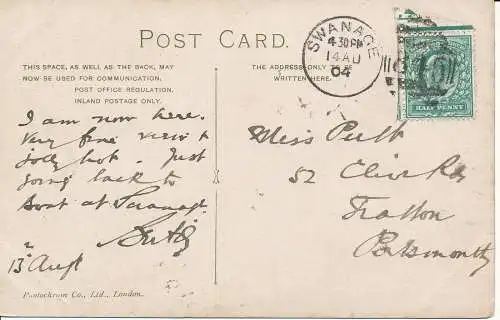 POST CARD.
THIS SPACE, AS WELL AS THE BACK, MAY
NOW BE USED FOR COMMUNICATION,
POST OFFICE REGULATION.
INLAND POSTAGE ONLY.
THE ADDRESS ONLY TO BE
WRITTEN HERE.
SWANAGE
4.30PM
14 AU
04
HALF PENNY
I am now here.
Very fine view &
jolly hot. Just
going back to
boat at Swanage.
13 Augt
Miss Pult
52 Clive Rd
Fratton
Portsmouth
Pantochrom Co., Ltd., London.